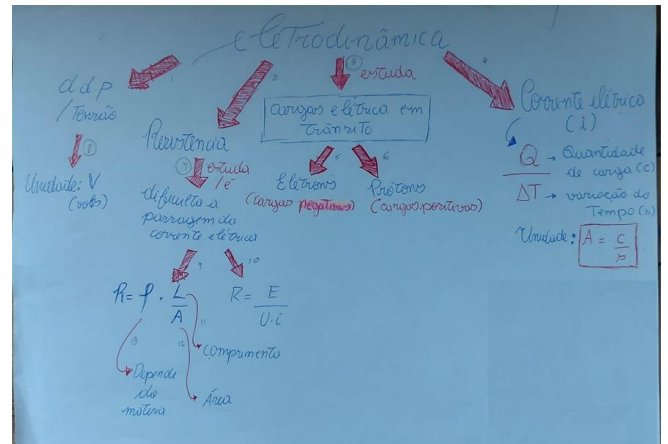 Eletrodinâmica
1
2
3
estuda
4
ddp
/Tensão
1
Unidade: V
(volts)
Resistência
7
estuda
/é
dificulta a
passagem da
corrente elétrica
9
10
R = ρ . L/A
R = E/U.i
11
12
13
Comprimento
Depende
do
matéria
Área
cargas elétrica em
trânsito
5
6
Elétrons
(cargas negativas)
Prótons
(cargas positivas)
Corrente elétrica
(i)
Q → Quantidade
de carga (c)
ΔT → variação do
Tempo (s)
Unidade: A = C/s